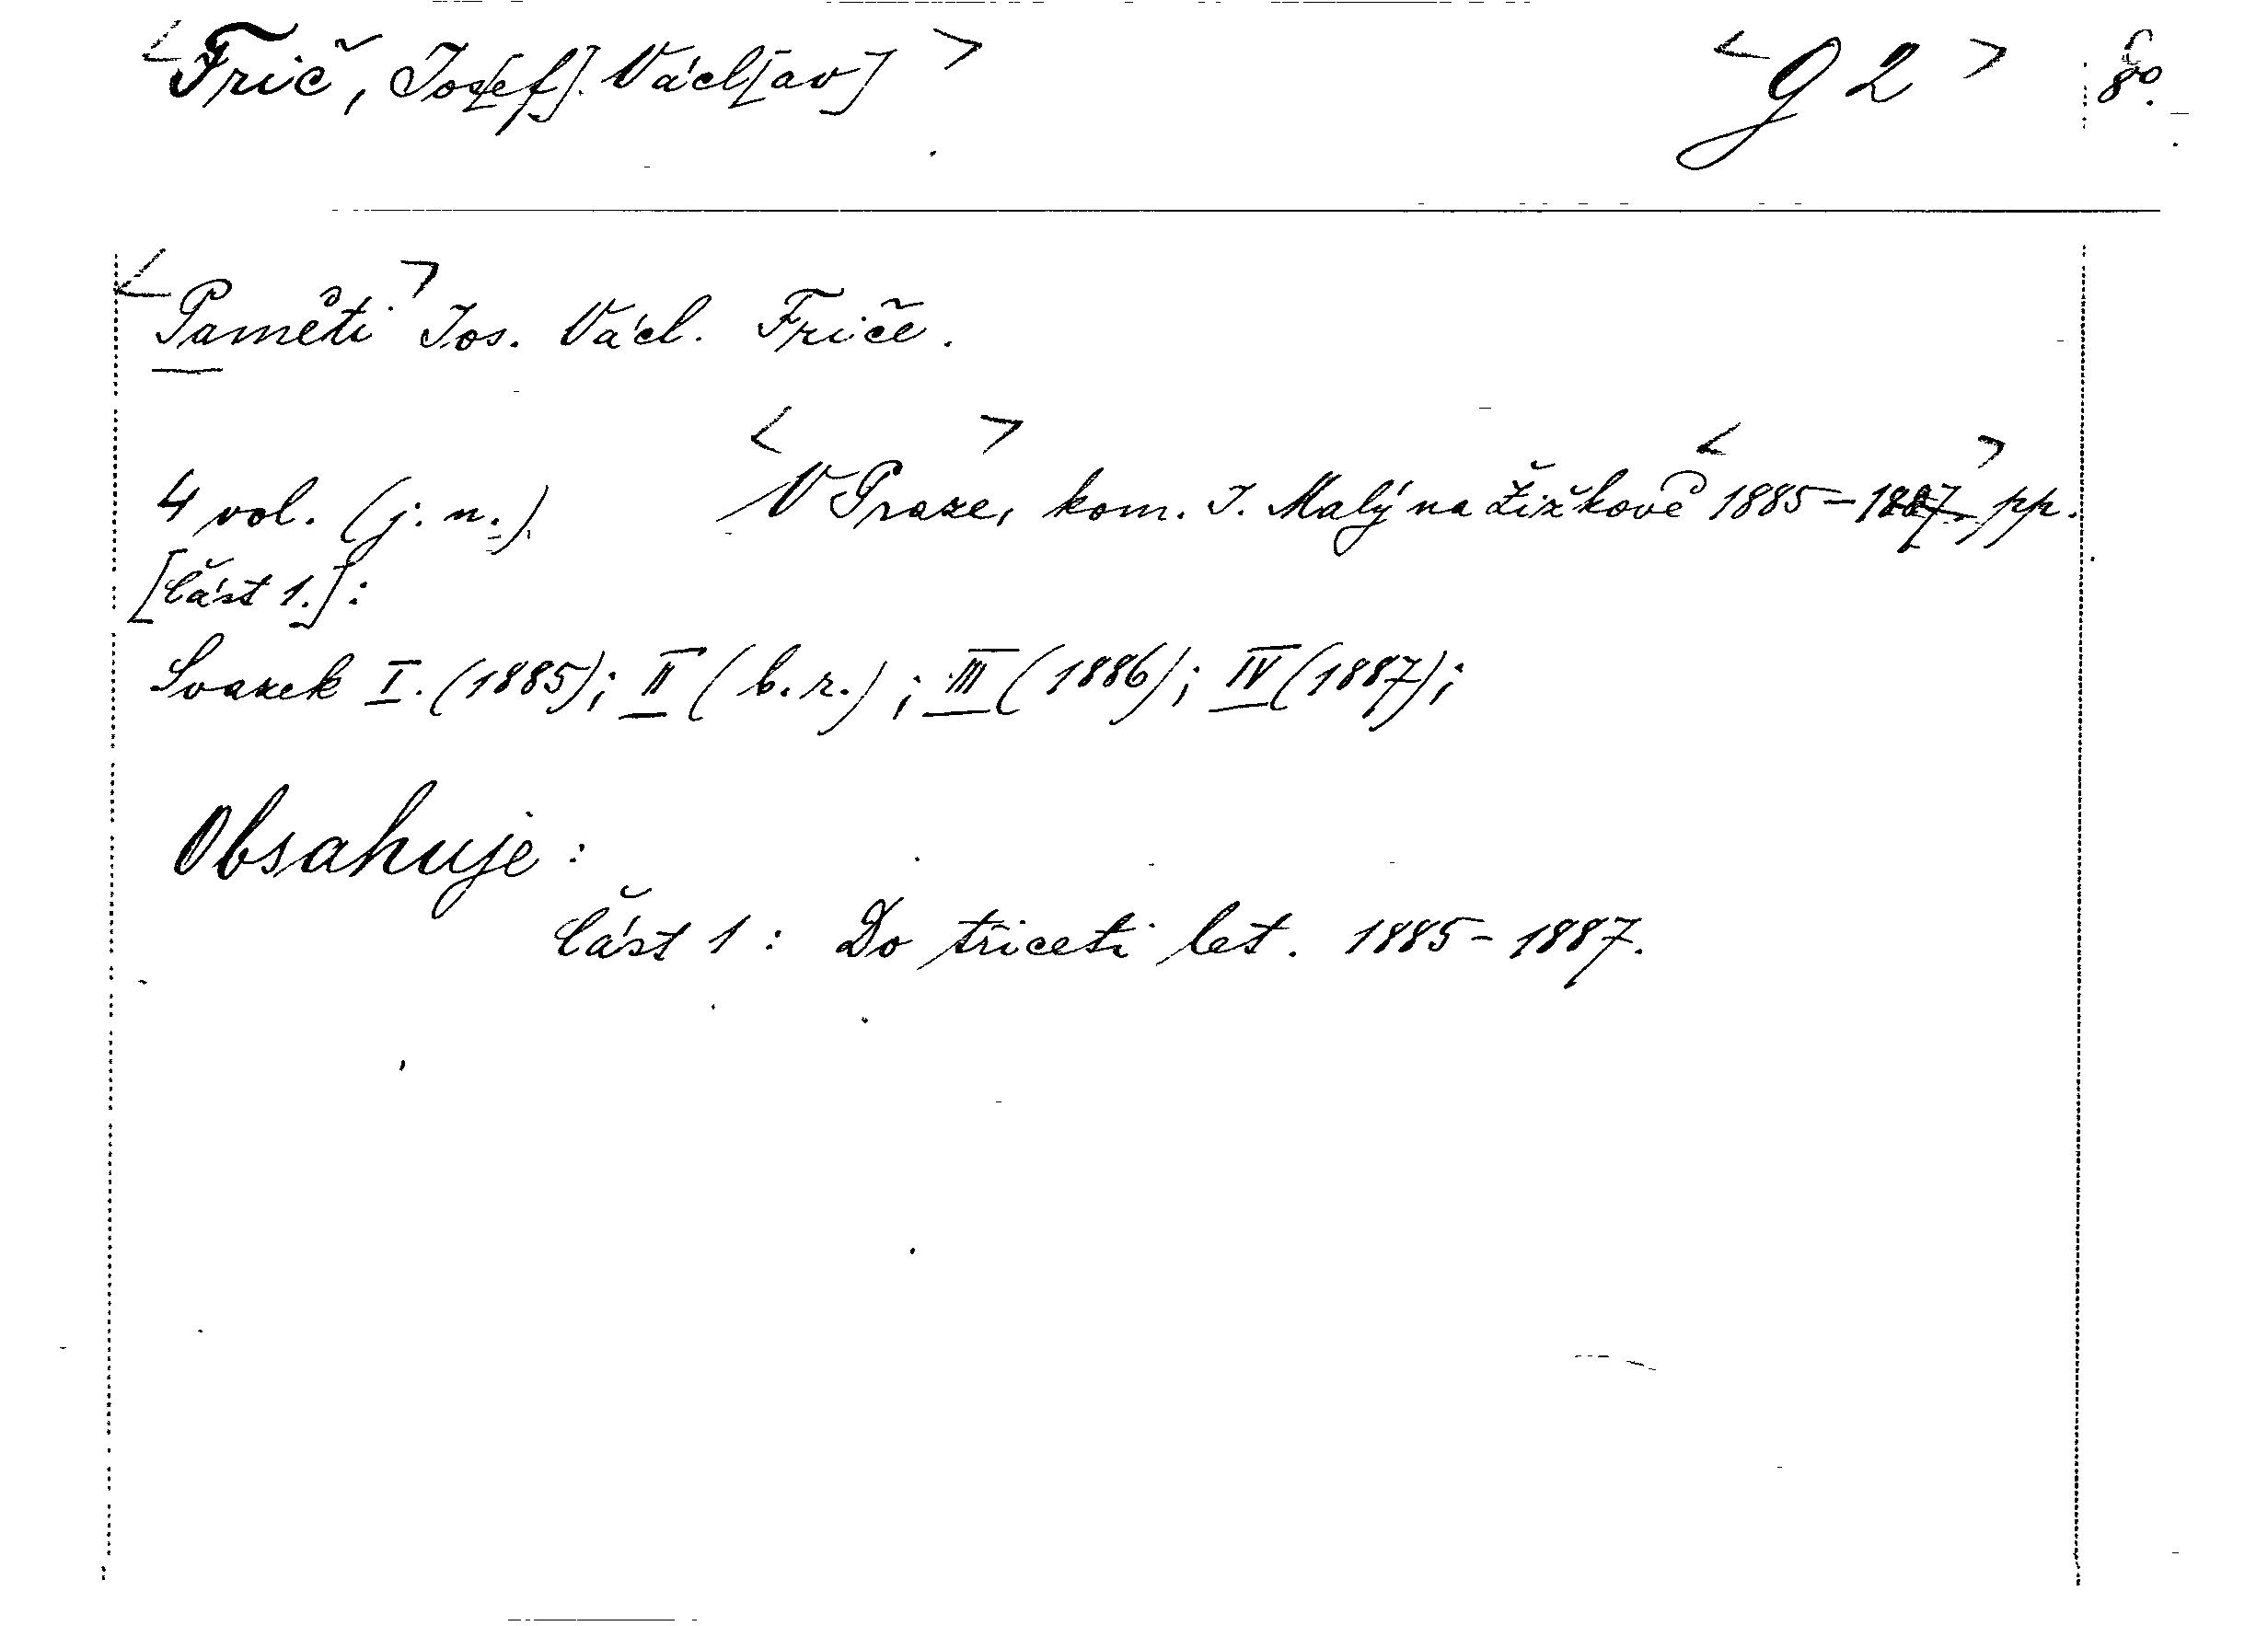 <Frič, Jos[ef]. Václ[av]> <G 2> 8o.
<Paměti> Jos. Václ. Friče.
4 vol. (j. n.) <V Praze>, kom. J. Malý na Žižkově <1885-1887> pp.
[Část 1.]:
Svazek I. (1885); II (b.r.); III (1886); IV (1887);
Obsahuje:
Část 1: Do třiceti let. 1885-1887.